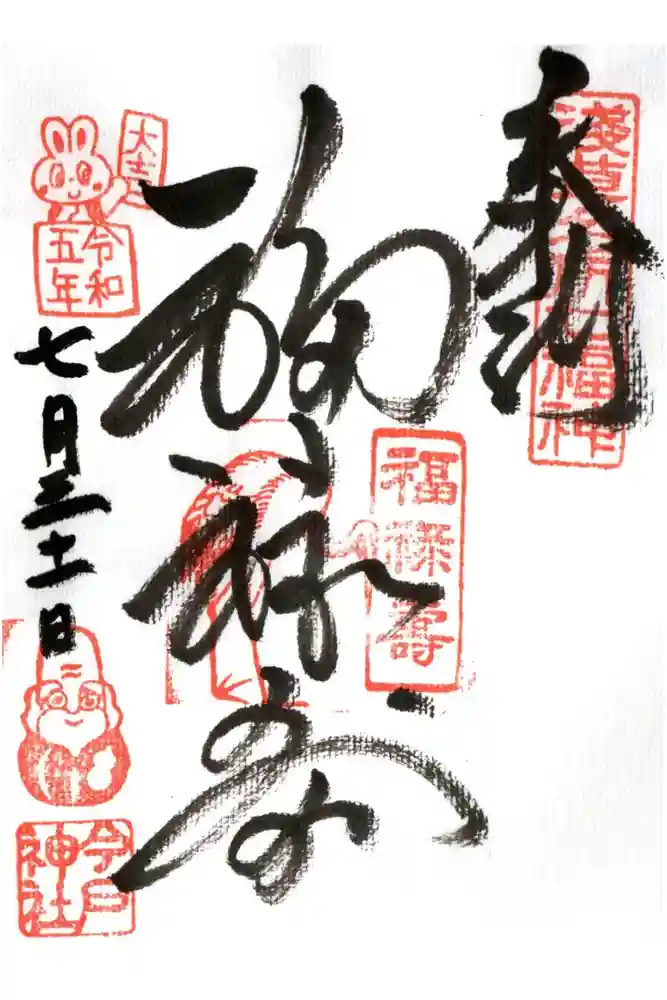 奉拝
淺草名所七福神
福禄寿
福禄壽
大吉
令和
五年
七月三十一日
今戸
神社